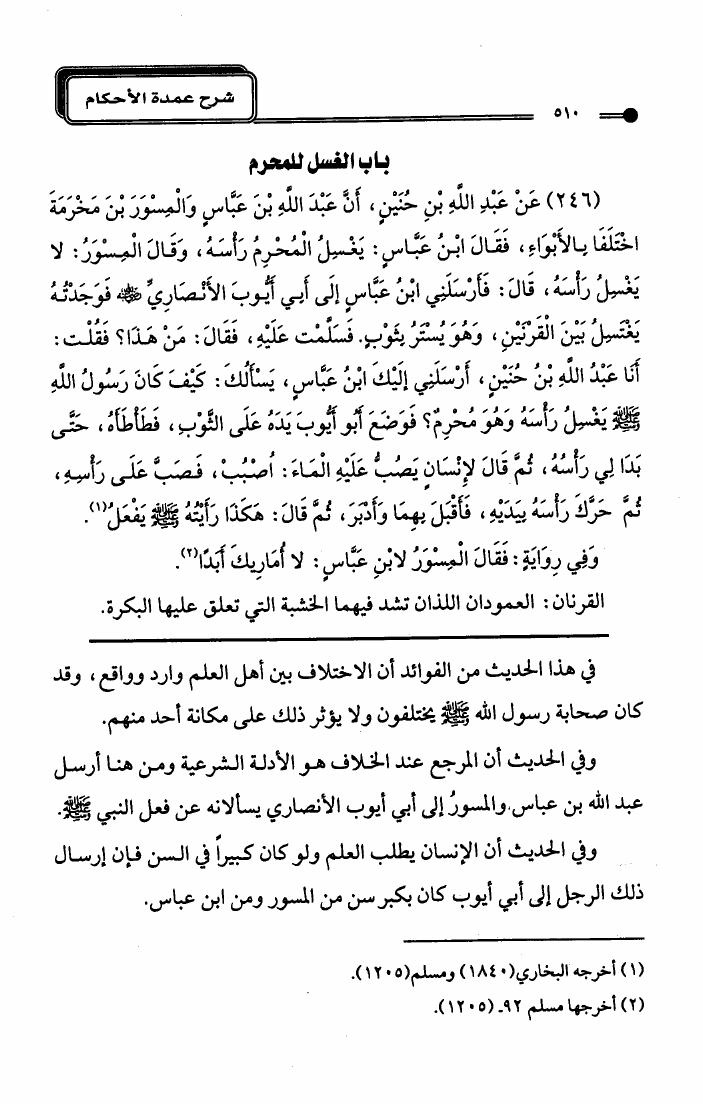 شرح عمدة الأحكام
٥١٠
باب الغسل للمحرم
(٢٤٦) عَنْ عَبْدِ اللَّهِ بْنِ حُنَيْنٍ، أَنَّ عَبْدَ اللَّهِ بْنَ عَبَّاسٍ وَالْمِسْوَرَ بْنَ مَخْرَمَةَ
اخْتَلَفَا بِالأَبْوَاءِ، فَقَالَ ابْنُ عَبَّاسٍ: يَغْسِلُ الْمُحْرِمُ رَأْسَهُ، وَقَالَ الْمِسْوَرُ: لا
يَغْسِلُ رَأْسَهُ، قَالَ: فَأَرْسَلَنِي ابْنُ عَبَّاسٍ إلَى أَبِي أَيُّوبَ الأَنْصَارِيِّ ﷺ فَوَجَدْتُهُ
يَغْتَسِلُ بَيْنَ الْقَرْنَيْنِ، وَهُوَ يُسْتَرُ بِثَوْبٍ. فَسَلَّمْت عَلَيْهِ، فَقَالَ: مَنْ هَذَا؟ فَقُلْت:
أَنَا عَبْدُ اللَّهِ بْنُ حُنَيْنٍ، أَرْسَلَنِي إلَيْكَ ابْنُ عَبَّاسٍ، يَسْأَلُكَ: كَيْفَ كَانَ رَسُولُ اللَّهِ
ﷺ يَغْسِلُ رَأْسَهُ وَهُوَ مُحْرِمٌ؟ فَوَضَعَ أَبُو أَيُّوبَ يَدَهُ عَلَى الثَّوْبِ، فَطَأْطَأَهُ، حَتَّى
بَدَا لِي رَأْسُهُ، ثُمَّ قَالَ لإِنْسَانٍ يَصُبُّ عَلَيْهِ الْمَاءَ: اُصْبُبْ، فَصَبَّ عَلَى رَأْسِهِ،
ثُمَّ حَرَّكَ رَأْسَهُ بِيَدَيْهِ، فَأَقْبَلَ بِهِمَا وَأَدْبَرَ، ثُمَّ قَالَ: هَكَذَا رَأَيْتُهُ ﷺ يَفْعَلُ(١).
وَفِي رِوَايَةٍ: فَقَالَ الْمِسْوَرُ لابْنِ عَبَّاسٍ: لا أُمَارِيكَ أَبَدًا(٢).
القرنان: العمودان اللذان تشد فيهما الخشبة التي تعلق عليها البكرة.
في هذا الحديث من الفوائد أن الاختلاف بين أهل العلم وارد وواقع، وقد
كان صحابة رسول الله ﷺ يختلفون ولا يؤثر ذلك على مكانة أحد منهم.
وفي الحديث أن المرجع عند الخلاف هو الأدلة الشرعية ومن هنا أرسل
عبد الله بن عباس والمسورُ إلى أبي أيوب الأنصاري يسألانه عن فعل النبي ﷺ.
وفي الحديث أن الإنسان يطلب العلم ولو كان كبيراً في السن فإن إرسال
ذلك الرجل إلى أبي أيوب كان بكبر سن من المسور ومن ابن عباس.
(١) أخرجه البخاري(١٨٤٠) ومسلم(١٢٠٥).
(٢) أخرجها مسلم ٩٢ـ (١٢٠٥).